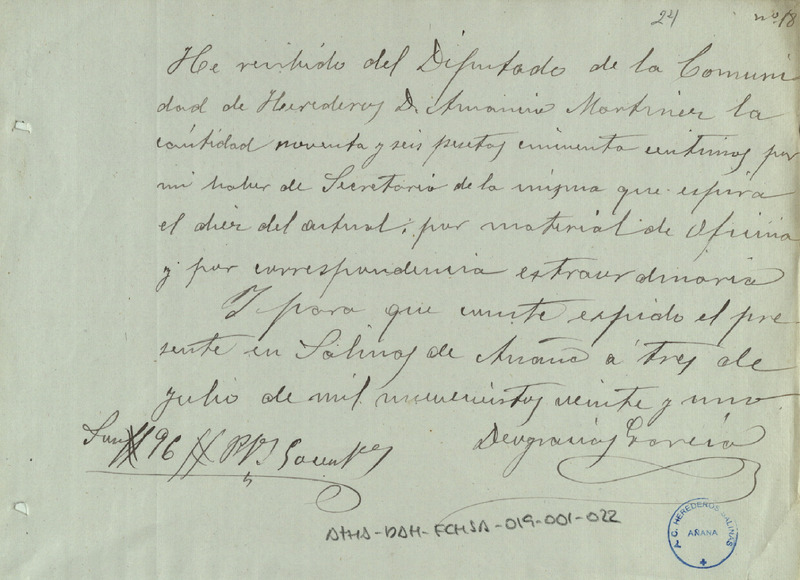 24
nº 18
He recibido del Diputado de la Comuni
dad de Herederos D. Amancio Martinez la
cántidad noventa y seis pesetas cincuenta centimos por
mi haber de Secretario de la misma que espira
el diez del actual; por material de oficina
y por correspondencia extraordinaria
Y para que conste espido el pre
sente en Salinas de Añana a tres de
julio de mil novecientos veinte y uno
Son 96 Pts
Deogracias Garcia
ATHA-DAH-FCHSA-019-001-022
C. HEREDEROS SALINAS
AÑANA